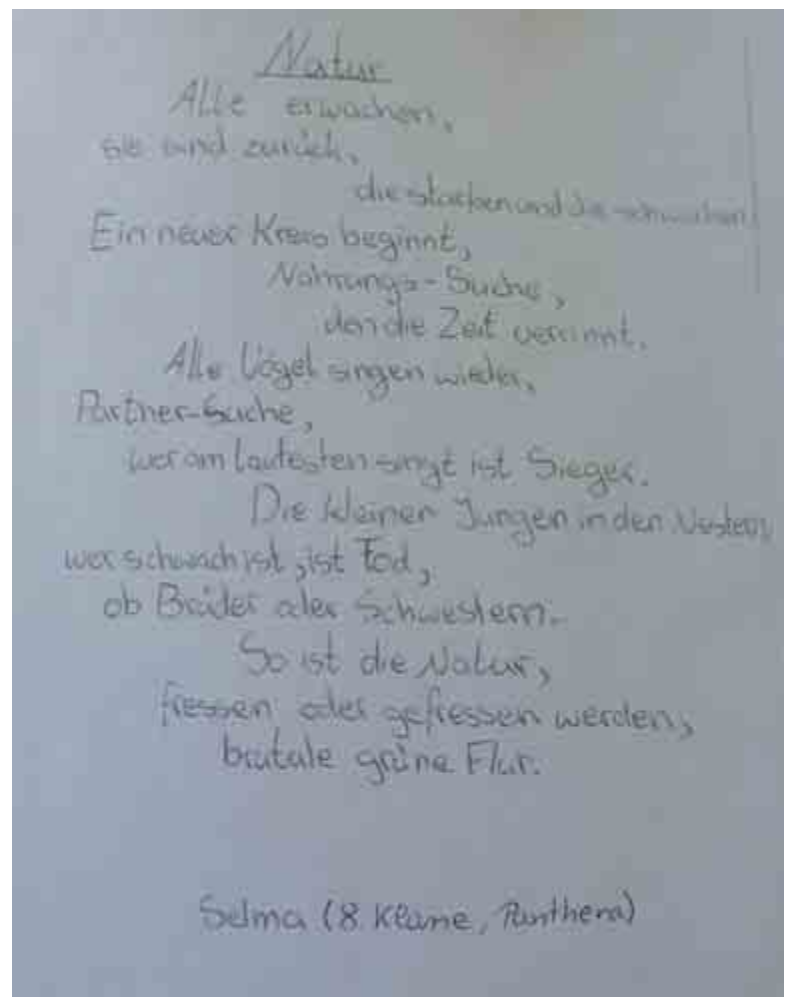 Natur
Alle erwachen,
sie sind zurück,
die starken und die schwachen.
Ein neuer Kreis beginnt,
Nahrungs-Suche,
den die Zeit verrinnt.
Alle Vögel singen wieder,
Partner-Suche,
wer am lautesten singt ist Sieger.
Die kleinen Jungen in den Nestern,
wer schwach ist, ist Tod,
ob Brüder oder Schwestern.
So ist die Natur,
fressen oder gefressen werden,
brutale grüne Flur.
Selma (8. Klasse, Panthera)